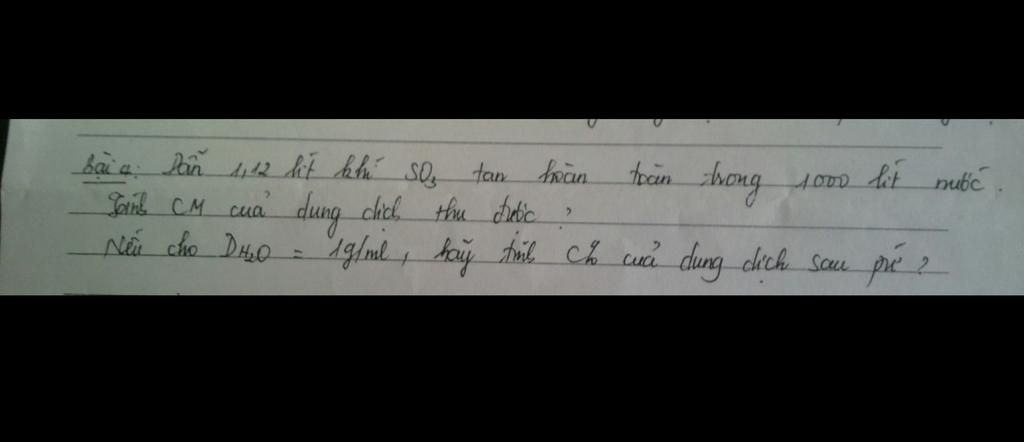 Bài 4: Dẫn 1,12 lít khí SO3 tan hoàn toàn trong 1000 lít nước.
Tính CM của dung dịch thu được ?
Nếu cho DH2O = 1g/ml, hãy tính C% của dung dịch sau pứ ?